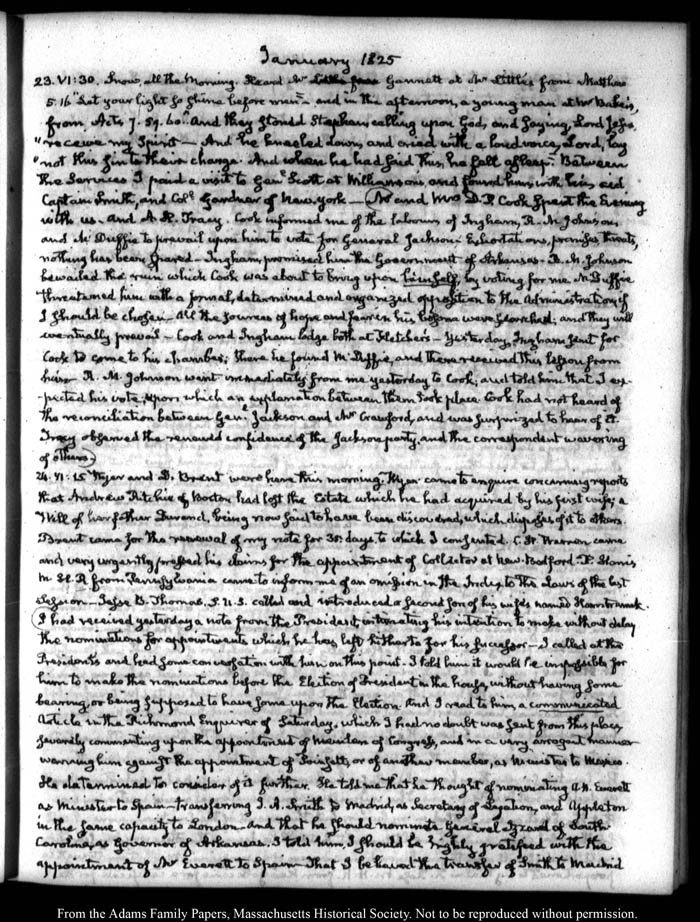 January 1825
23. VI:30. Snow, all the Morning. Heard Mr Gannett at Mr Little's from Matthew
5.16 "Let your light so shine before men" and in the afternoon, a young man at Mr Baker's,
from Acts 7. 59. 60. "And they stoned Stephen, calling upon God, and saying, Lord Jesus,
"receive my Spirit — And he kneeled down, and cried with a loud voice, Lord, lay
"not this sin to their charge. And when he had said this, he fell asleep." Between
the Services I paid a visit to Genl Scott at Williamson's and found him with his aid
Captain Smith, and Coll Gardner of New-York — Mr and Mrs D. P. Cook spent the Evening
with us. and A. H. Tracy. Cook informed me of the labours of Ingham, R. M. Johnson,
and McDuffie to prevail upon him to vote for General Jackson. Exhortations, promises, threats,
nothing has been spared — Ingham promised him the Government of Arkansas. R. M. Johnson
bewailed the ruin which Cook was about to bring upon himself, by voting for me. McDuffie
threatened him with a formal, determined and organized opposition to the Administration if
I should be chosen — All the sources of hope and fear in his bosom were searched; and they will
eventually prevail — Cook and Ingham lodge both at Fletcher's — Yesterday, Ingham sent for
Cook to come to his chamber; there he found McDuffie, and there received this lesson from
him — R. M. Johnson went immediately from me yesterday to Cook, and told him that I ex-
pected his vote; upon which an explanation between them took place. Cook had not heard of
the reconciliation between Genl Jackson and Mr Crawford, and was surprized to hear of it.
Tracy observed the renewed confidence of the Jackson party, and the correspondent wavering
of others.
24. VI:15. Wyer and D. Brent were here this morning. Wyer came to enquire concerning reports
that Andrew Ritchie of Boston had lost the Estate which he had acquired by his first wife; a
Will of her father Durand, being now said to have been discovered, which disposes of it to others.
Brent came for the renewal of my note for 30 days, to which I consented. C. H. Warren came
and very urgently pressed his claims for the appointment of Collector at New-Bedford.
M. H.R from Pennsylvania came to inform me of an omission in the Index to the Laws of the last
Session — Jesse B. Thomas, S. U.S. called and introduced a second son of his wife's named Hamtramck.
I had received yesterday a note from the President, intimating his intention to make without delay
the nominations for appointments which he has left hitherto for his successor — I called at the
President's and had some conversation with him on this point. I told him it would be impossible for
him to make the nominations before the Election of President in the house, without having some
bearing, or being supposed to have some upon the Election. And I read to him, a communicated
Article in the Richmond Enquirer of Saturday, which I had no doubt was sent from this place,
severely commenting upon the appointment of Members of Congress, and in a very arrogant manner
warning him against the appointment of Poinsett, or of another member, as Minister to Mexico.
He determined to consider of it further. He told me that he thought of nominating A. H. Everett
as Minister to Spain — transferring J. A. Smith to Madrid, as Secretary of Legation, and Appleton
in the same capacity to London — and that he should nominate General Izard of South
Carolina, as Governor of Arkansas. I told him, I should be highly gratified with the
appointment of Mr Everett to Spain — That I believed the transfer of Smith to Madrid
From the Adams Family Papers, Massachusetts Historical Society. Not to be reproduced without permission.